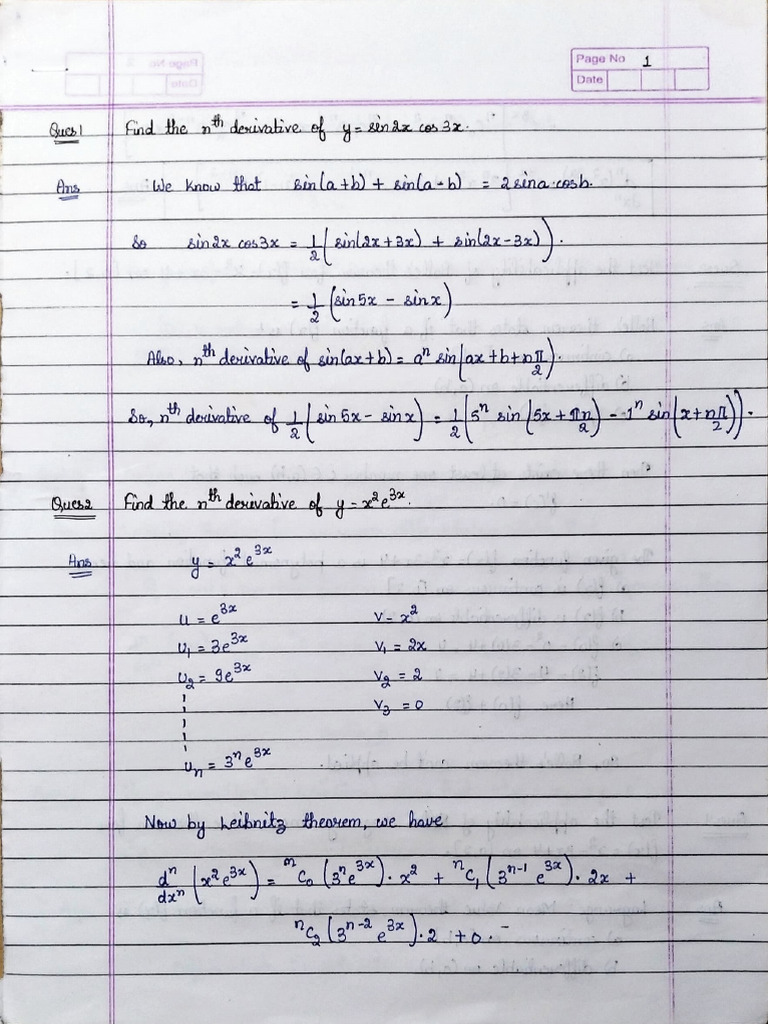 Page No 1
Date
Ques 1 Find the nth derivative of y = sin2x cos3x.
Ans We know that sin(a+b) + sin(a-b) = 2 sina·cosb.
So sin2x cos3x = 1/2 (sin(2x+3x) + sin(2x-3x)).
= 1/2 (sin5x - sinx)
Also, nth derivative of sin(ax+b) = a^n sin(ax+b+nπ/2).
So, nth derivative of 1/2 (sin5x - sinx) = 1/2 (5^n sin(5x+πn/2) - 1^n sin(x+nπ/2)).
Ques2 Find the nth derivative of y = x²e^3x.
Ans y = x²e^3x
u = e^3x v = x²
u₁ = 3e^3x v₁ = 2x
u₂ = 9e^3x v₂ = 2
v₃ = 0
uₙ = 3^n e^3x
Now by Leibnitz theorem, we have
d^n/dx^n (x²e^3x) = ⁿC₀ (3^n e^3x)·x² + ⁿC₁ (3^(n-1) e^3x)·2x +
ⁿC₂ (3^(n-2) e^3x)·2 + 0